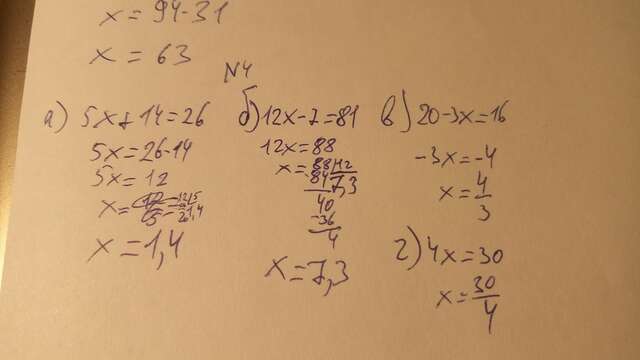 x = 94-31
x = 63
N4
а) 5x+14=26
5x=26-14
5x=12
x=1,4
б) 12x-7=81
12x=88
x= 88 12
84 7,3
40
-36
4
x=7,3
в) 20-3x=16
-3x=-4
x=4/3
г) 4x=30
x=30/4